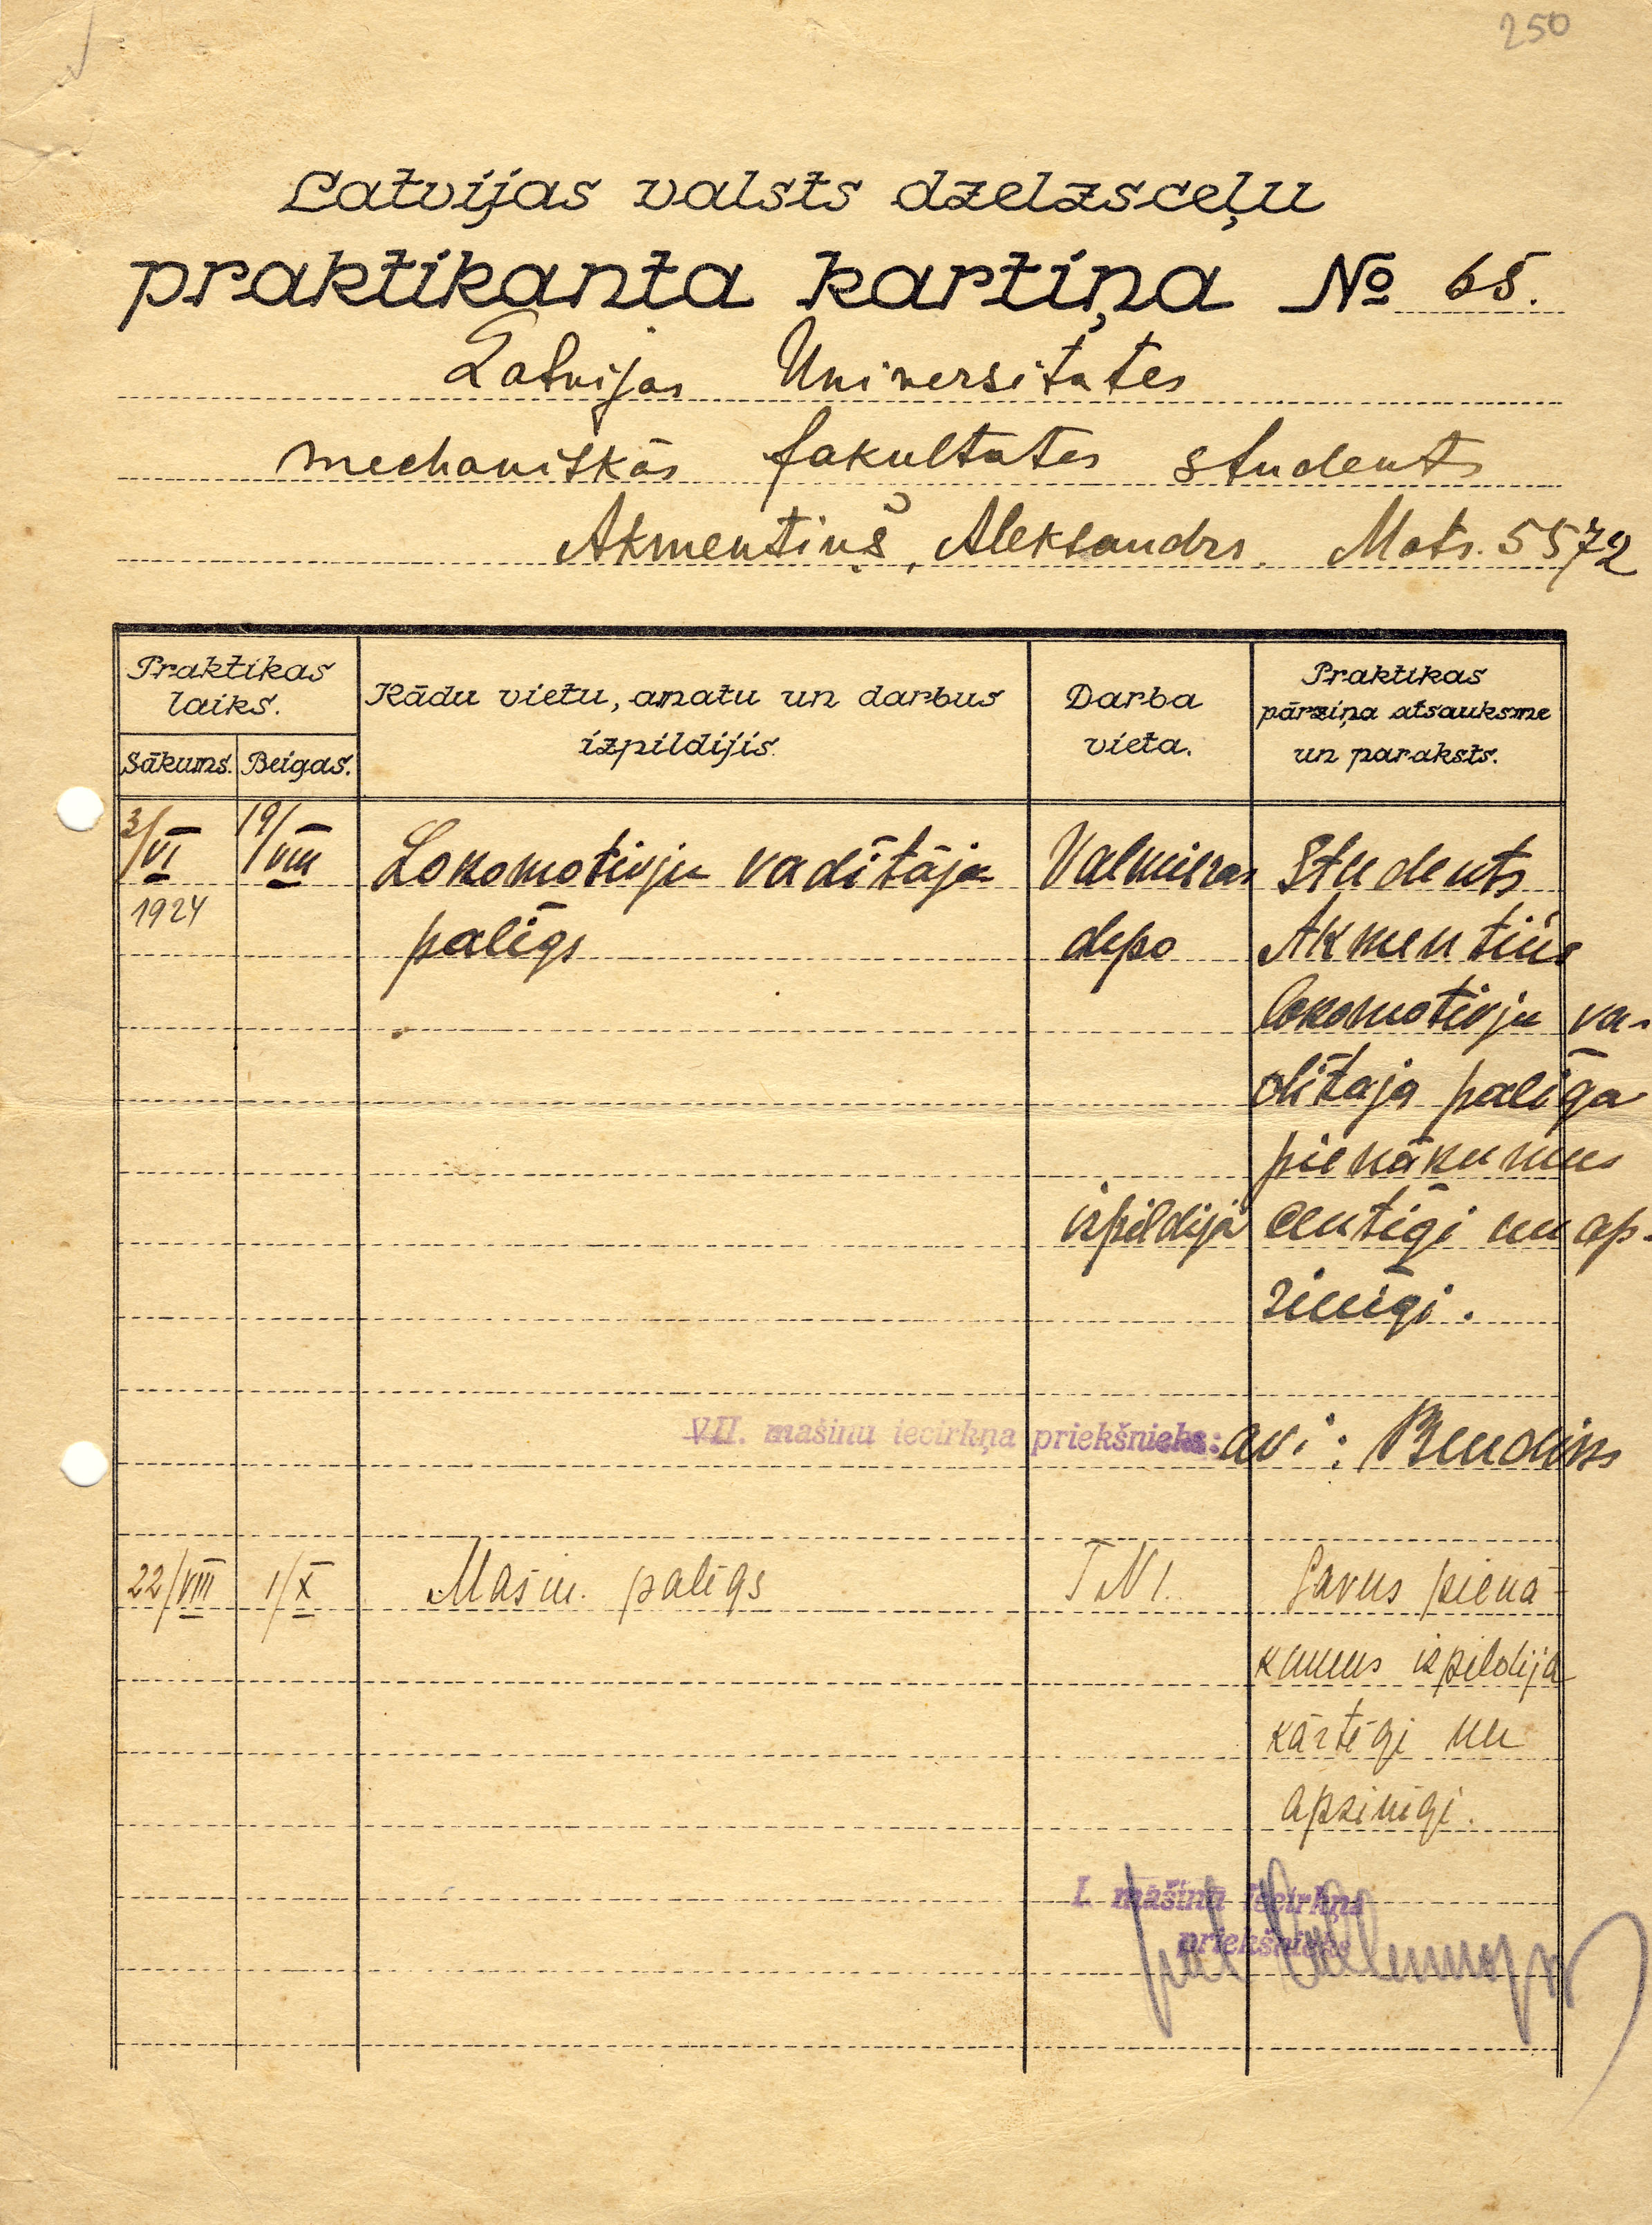 250
Latvijas valsts dzelzsceļu
praktikanta kartiņa № 65.
Latvijas Universitates
mechaniskās fakultates students
Akmentiņš, Aleksandrs. Matr. 5572
Praktikas laiks.
Sākums. Beigas.
Kādu vietu, amatu un darbus
izpildijis.
Darba
vieta.
Praktikas
pārziņa atsauksme
un paraksts.
3/VI 19/VIII Lokomotivju vadītāja Valmieras Students
1924 palīgs depo Akmentiņš
lokomotivju va-
dītaja palīga
pienākumus
izpildija centīgi un ap-
zinīgi.
VII. mašinu iecirkņa priekšnieks: avi:
22/VIII 1/X Mašin. palīgs TN1. Savus pienā-
kumus izpildija
kārtīgi un
apzinīgi.
I. mašīnu iecirkņa
priekšnieks